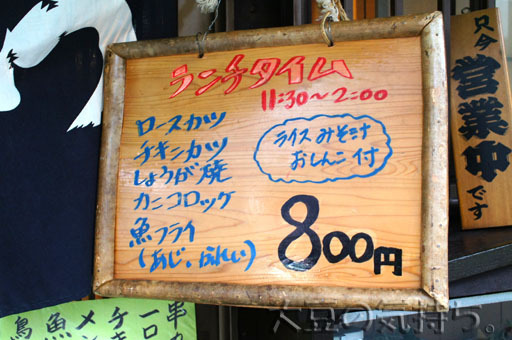 ランチタイム
11:30〜2:00
ロースカツ
チキンカツ
しょうが焼
カニコロッケ
魚フライ
(あじ、かれい)
ライス みそ汁
おしんこ 付
800円
只今
営業中
です
串カ
一口
チキ
メン
魚
鳥
大豆の気持ち。